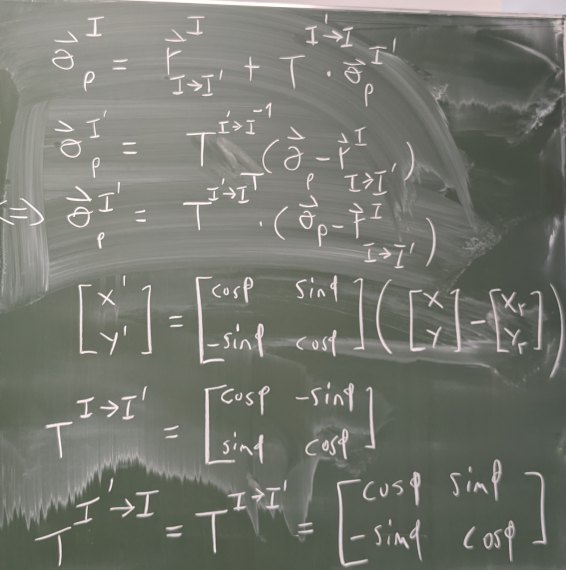 $\vec{o}_p^{I} = \vec{r}_{I \to I'}^{I} + T^{I' \to I} \cdot \vec{o}_p^{I'}$
$\vec{o}_p^{I'} = T^{I' \to I^{-1}} (\vec{o}_p - \vec{r}_{I \to I'}^{I})$
$\Leftrightarrow \vec{o}_p^{I'} = T^{I' \to I^{T}} \cdot (\vec{o}_p - \vec{r}_{I \to I'}^{I})$
$\begin{bmatrix} x' \\ y' \end{bmatrix} = \begin{bmatrix} \cos\varphi & \sin\varphi \\ -\sin\varphi & \cos\varphi \end{bmatrix} \left( \begin{bmatrix} x \\ y \end{bmatrix} - \begin{bmatrix} x_r \\ y_r \end{bmatrix} \right)$
$T^{I \to I'} = \begin{bmatrix} \cos\varphi & -\sin\varphi \\ \sin\varphi & \cos\varphi \end{bmatrix}$
$T^{I' \to I} = T^{I \to I'} = \begin{bmatrix} \cos\varphi & \sin\varphi \\ -\sin\varphi & \cos\varphi \end{bmatrix}$